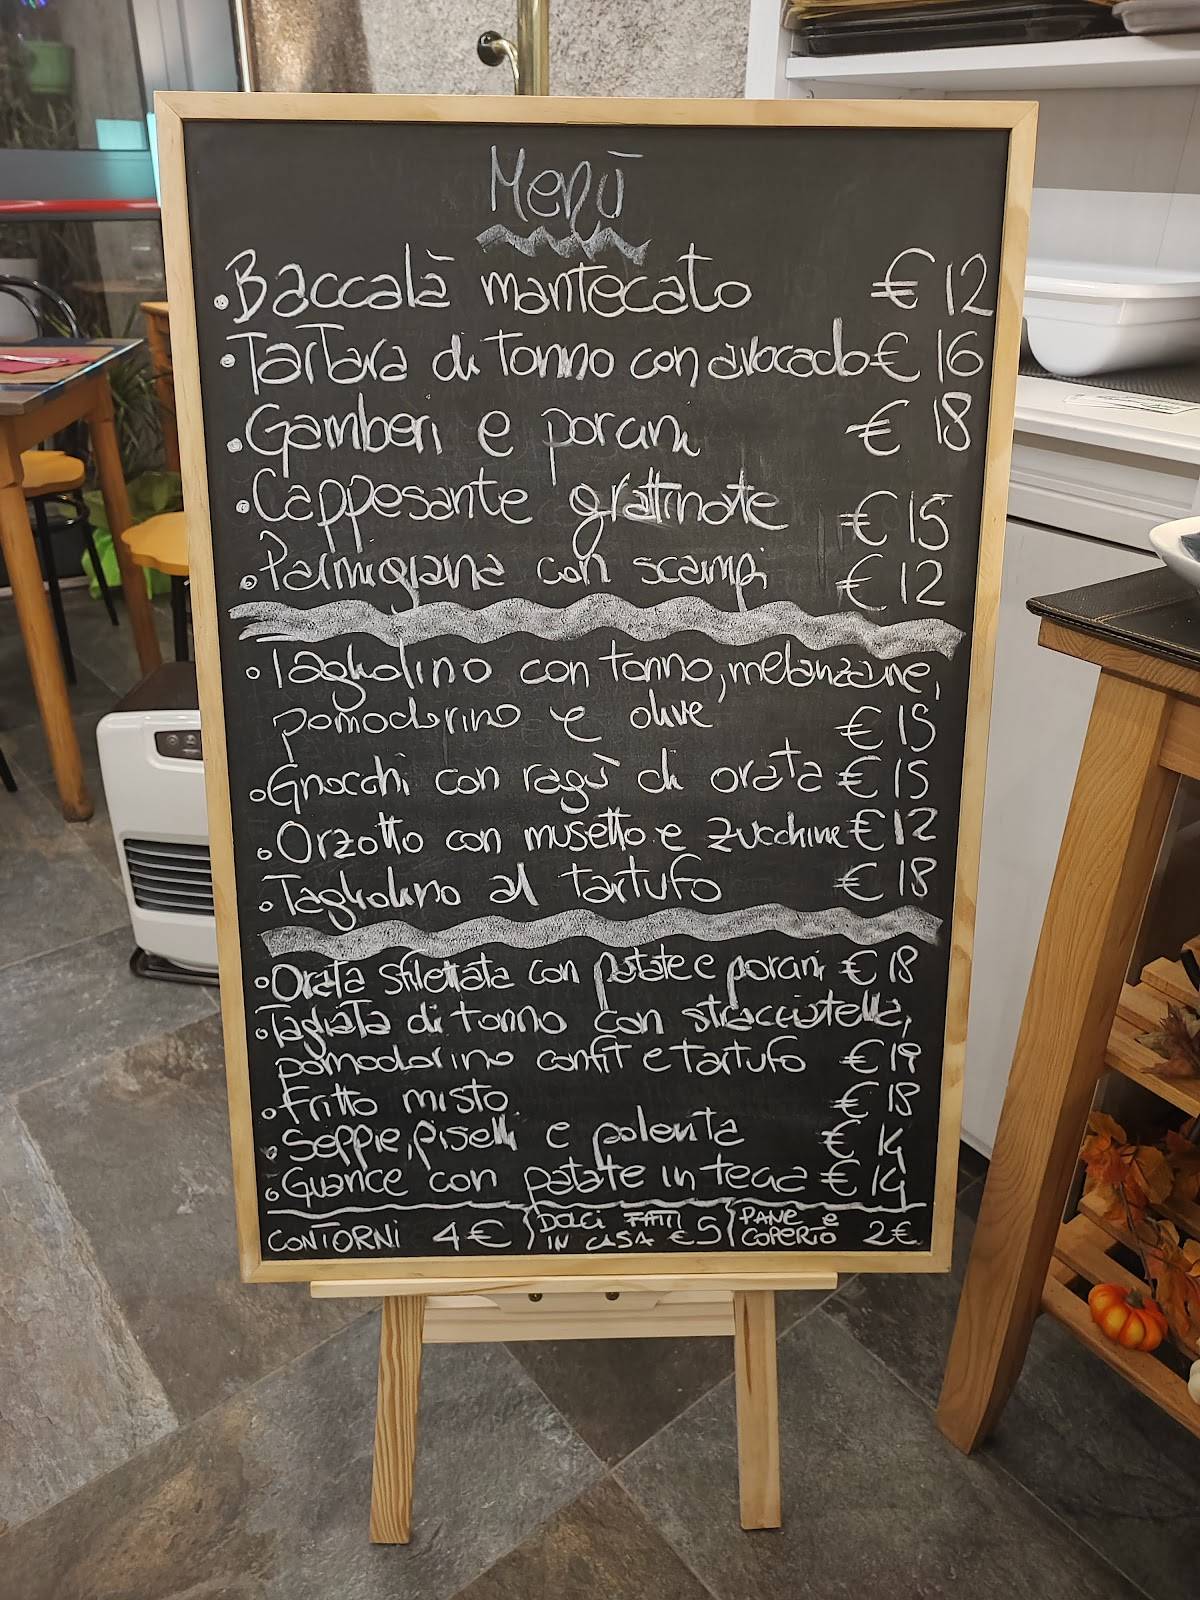 Menù
• Baccalà mantecato € 12
• Tartara di tonno con avocado € 16
• Gamberi e porcini € 18
• Cappesante grattinate € 15
• Parmigiana con scampi € 12
• Tagliolino con tonno, melanzane,
pomodorino e olive € 15
• Gnocchi con ragù di orata € 15
• Orzotto con musetto e zucchine € 12
• Tagliolino al tartufo € 18
• Orata sfilettata con patate e porcini € 18
• Tagliata di tonno con stracciatella,
pomodorino confit e tartufo € 19
• Fritto misto € 18
• Seppie, piselli e polenta € 14
• Guance con patate in tecia € 14
CONTORNI 4€ DOLCI FATTI IN CASA €5 PANE e COPERTO 2€